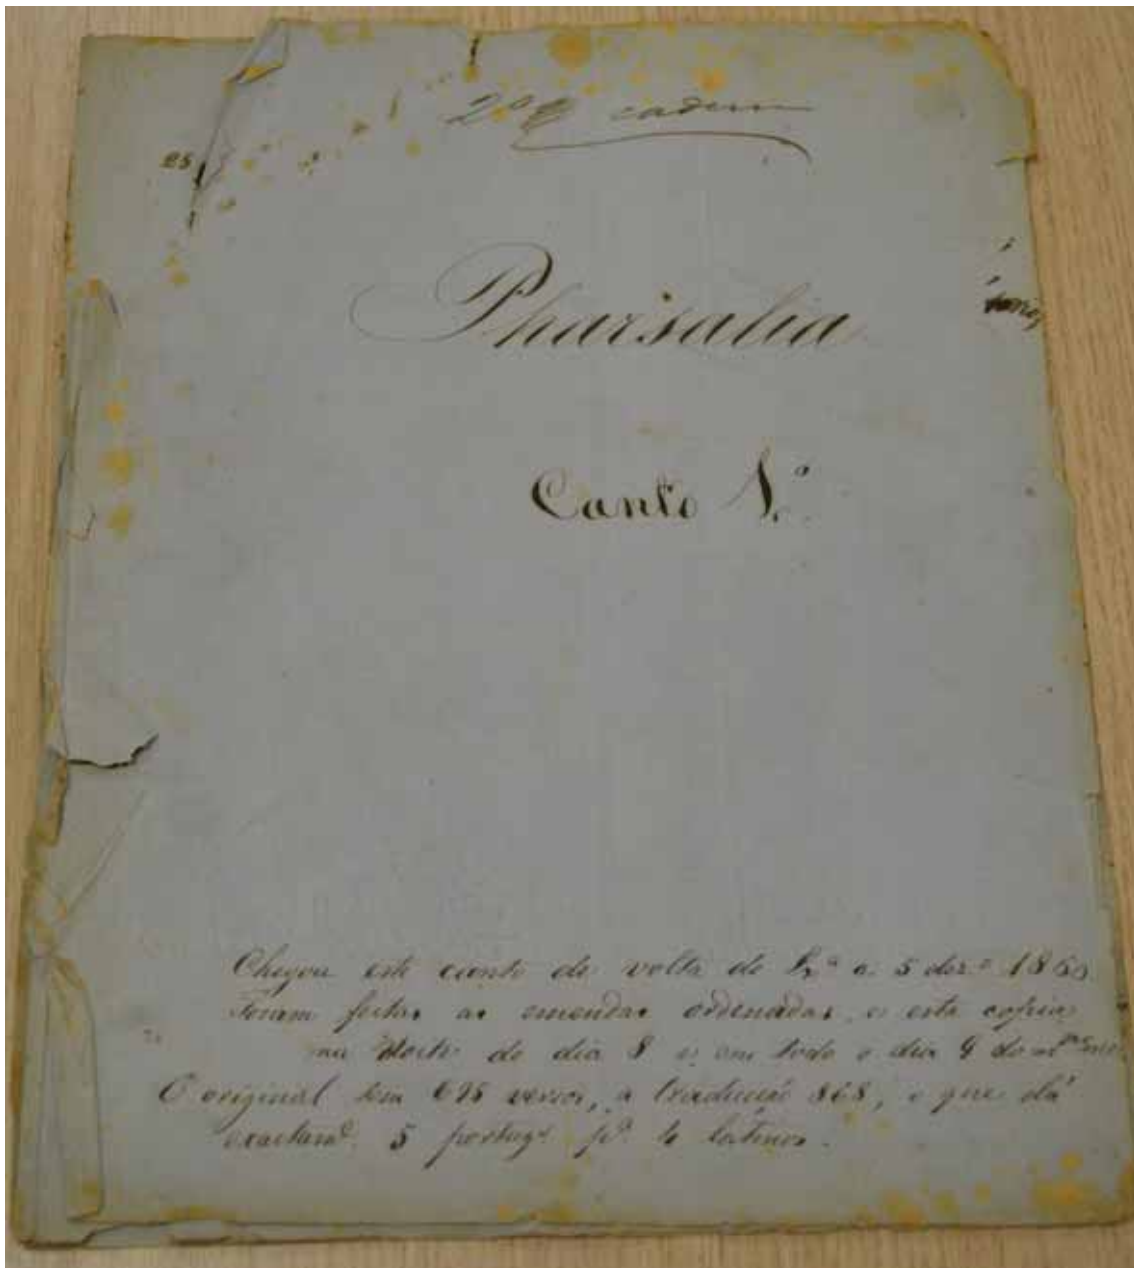 2º cadern
25
Pharsalia
Canto 1.º
Chegou este canto de volta de a 5 dezº 1860
Foram feitas as emendas ordenadas, e esta copia
na noite do dia 8 e em todo o dia 9 do mº
O original tem 695 versos, a traducção 868, o que dá
exactamᵉ 5 portugˢ pª 4 latinos.